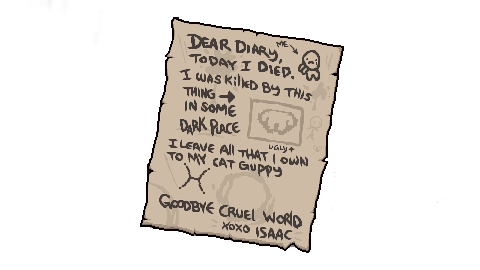 DEAR DIARY,
ME
TODAY I DIED.
I WAS KILLED BY THIS
THING →
IN SOME
DARK PLACE
UGLY
I LEAVE ALL THAT I OWN
TO MY CAT GUPPY
GOODBYE CRUEL WORLD
XOXO ISAAC